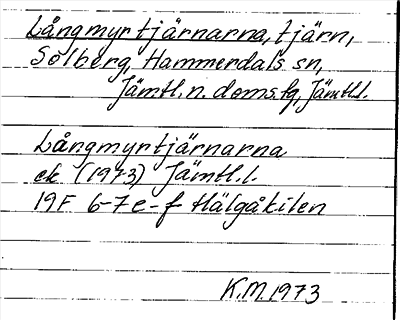 Långmyrtjärnarna, tjärn,
Solberg, Hammerdals sn,
Jämtl.n. doms.fg, Jämtl.l.
Långmyrtjärnarna
ek (1973) Jämtl.l.
19F 6-7e-f Hälgåkilen
K.M. 1973